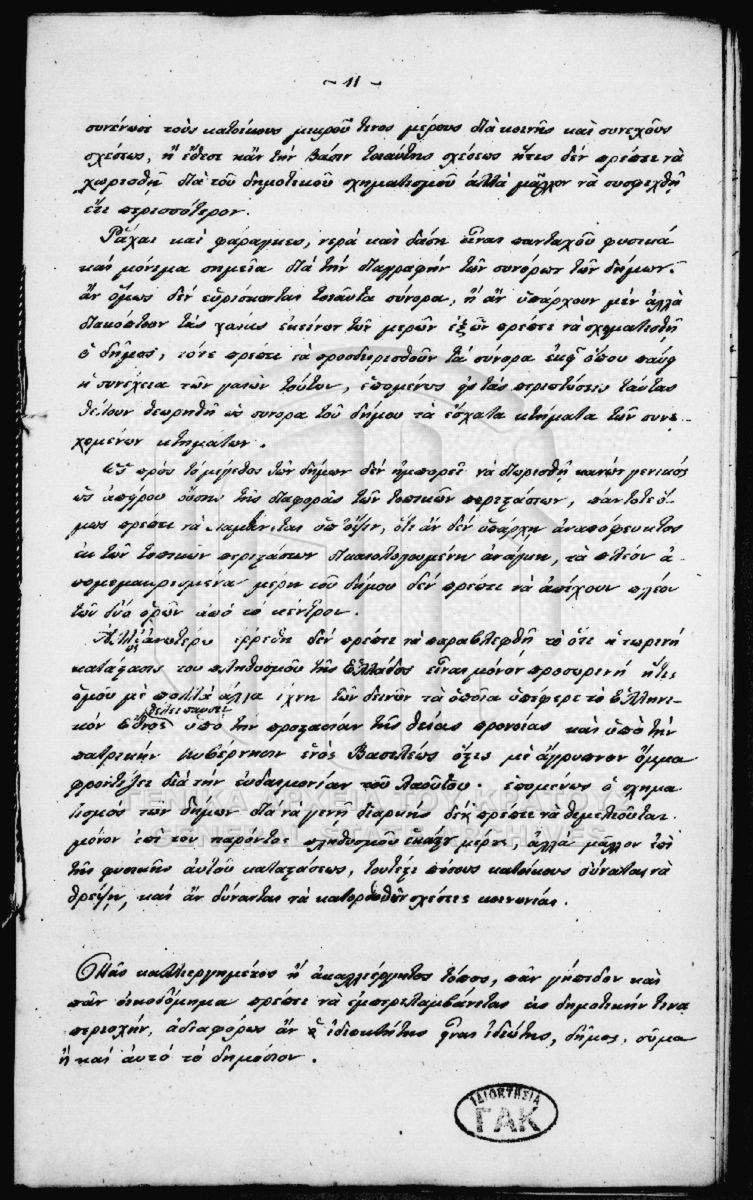 ~ 11 ~
συνένωσε τοὺς κατοίκους μικροῦ τινος μέρους διὰ κοινῆς καὶ συνεχοῦς
σχέσεως, ἢ ἔθεσε κἂν τὴν βάσιν τοιαύτης σχέσεως ἥτις δὲν πρέπει νὰ
χωρισθῇ διὰ τοῦ δημοτικοῦ σχηματισμοῦ ἀλλὰ μᾶλλον νὰ συσφιχθῇ
ἔτι περισσότερον.
Ῥάχαι καὶ φάραγκες, νερὰ καὶ δάση εἶναι πανταχοῦ φυσικὰ
καὶ μόνιμα σημεῖα διὰ τὴν διαγραφὴν τῶν συνόρων τῶν δήμων.
ἂν ὅμως δὲν εὑρίσκωνται τοιαῦτα σύνορα, ἢ ἂν ὑπάρχουν μὲν ἀλλὰ
διακόπτουν τὰς γαίας ἐκείνων τῶν μερῶν ἐξ ὧν πρέπει νὰ σχηματισθῇ
ὁ δῆμος, τότε πρέπει νὰ προσδιορισθοῦν τὰ σύνορα ἐκεῖ ὅπου παύει
ἡ συνέχεια τῶν γαιῶν τούτων, ἑπομένως εἰς τὰς περιστάσεις ταύτας
θέλουν θεωρηθῆ ὡς σύνορα τοῦ δήμου τὰ ἔσχατα κτήματα τῶν συνε-
χομένων κτημάτων.
Ὡς πρὸς τὸ μέγεθος τῶν δήμων δὲν ἠμπορεῖ νὰ διορισθῇ κανὼν γενικὸς
ὡς ἀπείρου οὔσης τῆς διαφορᾶς τῶν τοπικῶν περιστάσεων, πάντοτε ὅ-
μως πρέπει νὰ λαμβάνεται ὑπ' ὄψιν, ὅτι ἂν δὲν ὑπάρχῃ ἀναπόφευκτος
ἐκ τῶν τοπικῶν περιστάσεων δικαιολογουμένη ἀνάγκη, τὰ πλέον ἀ-
πομεμακρισμένα μέρη τοῦ δήμου δὲν πρέπει νὰ ἀπέχουν πλέον
τῶν δύο ὡρῶν ἀπὸ τὸ κέντρον.
ὡς ἀνωτέρω ἐρρέθη δὲν πρέπει νὰ παραβλεφθῇ τὸ ὅτι ἡ τωρινὴ
κατάστασις τοῦ πληθυσμοῦ τῆς Ἑλλάδος εἶναι μόνον προσωρινὴ ἥτις
ὁμοῦ μὲ πολλὰ ἄλλα ἴχνη τῶν δεινῶν τὰ ὁποῖα ὑπέφερε τὸ Ἑλληνι-
κὸν Ἔθνος θέλει παύσει ὑπὸ τὴν προστασίαν τῆς θείας προνοίας καὶ ὑπὸ τὴν
πατρικὴν κυβέρνησιν ἑνὸς Βασιλέως ὅστις μὲ ἄγρυπνον ὄμμα
φροντίζει διὰ τὴν εὐδαιμονίαν τοῦ λαοῦ του. ἑπομένως ὁ σχημα-
τισμὸς τῶν δήμων διὰ νὰ γένῃ διαρκὴς δὲν πρέπει νὰ θεμελιοῦται
μόνον ἐπὶ τοῦ παρόντος πληθυσμοῦ ἑκάστου μέρους, ἀλλὰ μᾶλλον ἐπὶ
τῆς φυσικῆς αὐτοῦ καταστάσεως, τουτέστι πόσους κατοίκους δύναται νὰ
θρέψῃ, καὶ ἂν δύναται νὰ κατορθωθῶσι σχέσεις κοινωνίας.
Πᾶς καλλιεργημένος ἢ ἀκαλλιέργητος τόπος, πᾶν γήπεδον καὶ
πᾶν οἰκοδόμημα πρέπει νὰ ἐμπεριλαμβάνεται εἰς δημοτικήν τινα
περιοχήν, ἀδιαφόρως ἂν ὁ ἰδιοκτήτης εἶναι ἰδιώτης, δῆμος, σῶμα
ἢ καὶ αὐτὸ τὸ δημόσιον.
ΓΕΝΙΚΑ ΑΡΧΕΙΑ ΤΟΥ ΚΡΑΤΟΥΣ
GENERAL STATE ARCHIVES
ΙΔΙΟΚΤΗΣΙΑ
ΓΑΚ